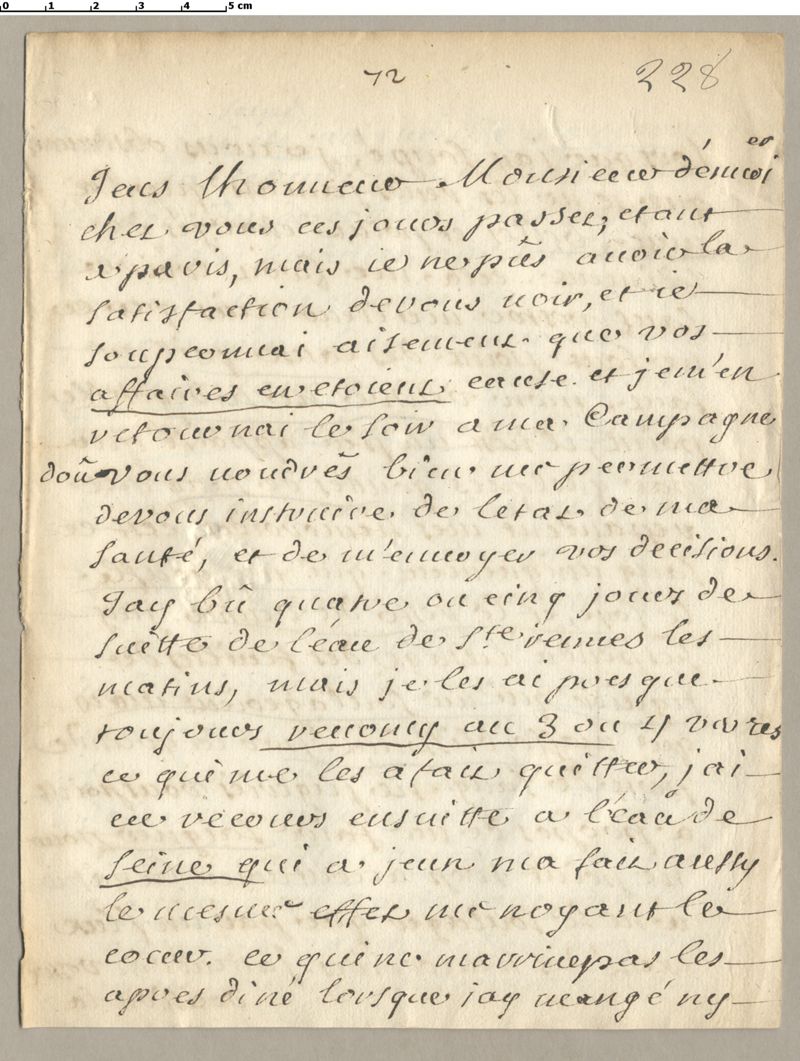 0 1 2 3 4 5 cm
72
228
Jeus lhonneur Monsieur d'énuoier
chez vous ces jours passez, etant
a paris, mais ie ne pûs auoir la
satisfaction de vous uoir, et ie
soupconnai aisement que vos
affaires en etoient cause. et je m'en
retournai le soir a ma Campagne
doû vous uoudrés bien me permettre
de vous instruire de letat de ma
santé, et de m'enuoyer vos decisions.
Jay bû quatre ou cinq jours de
suitte de l'éau de Ste reines les
matins, mais je les ai presque
toujours renduës au 3 ou 4 verres
ce qui me les a fait quitter, j'ai
eu recours ensuitte a l'éau de
seine qui a jeun ma fait aussy
le mesme effet me noyant le
coeur. ce qui ne m'arriue pas les
apres diné lorsque jay mangé ny